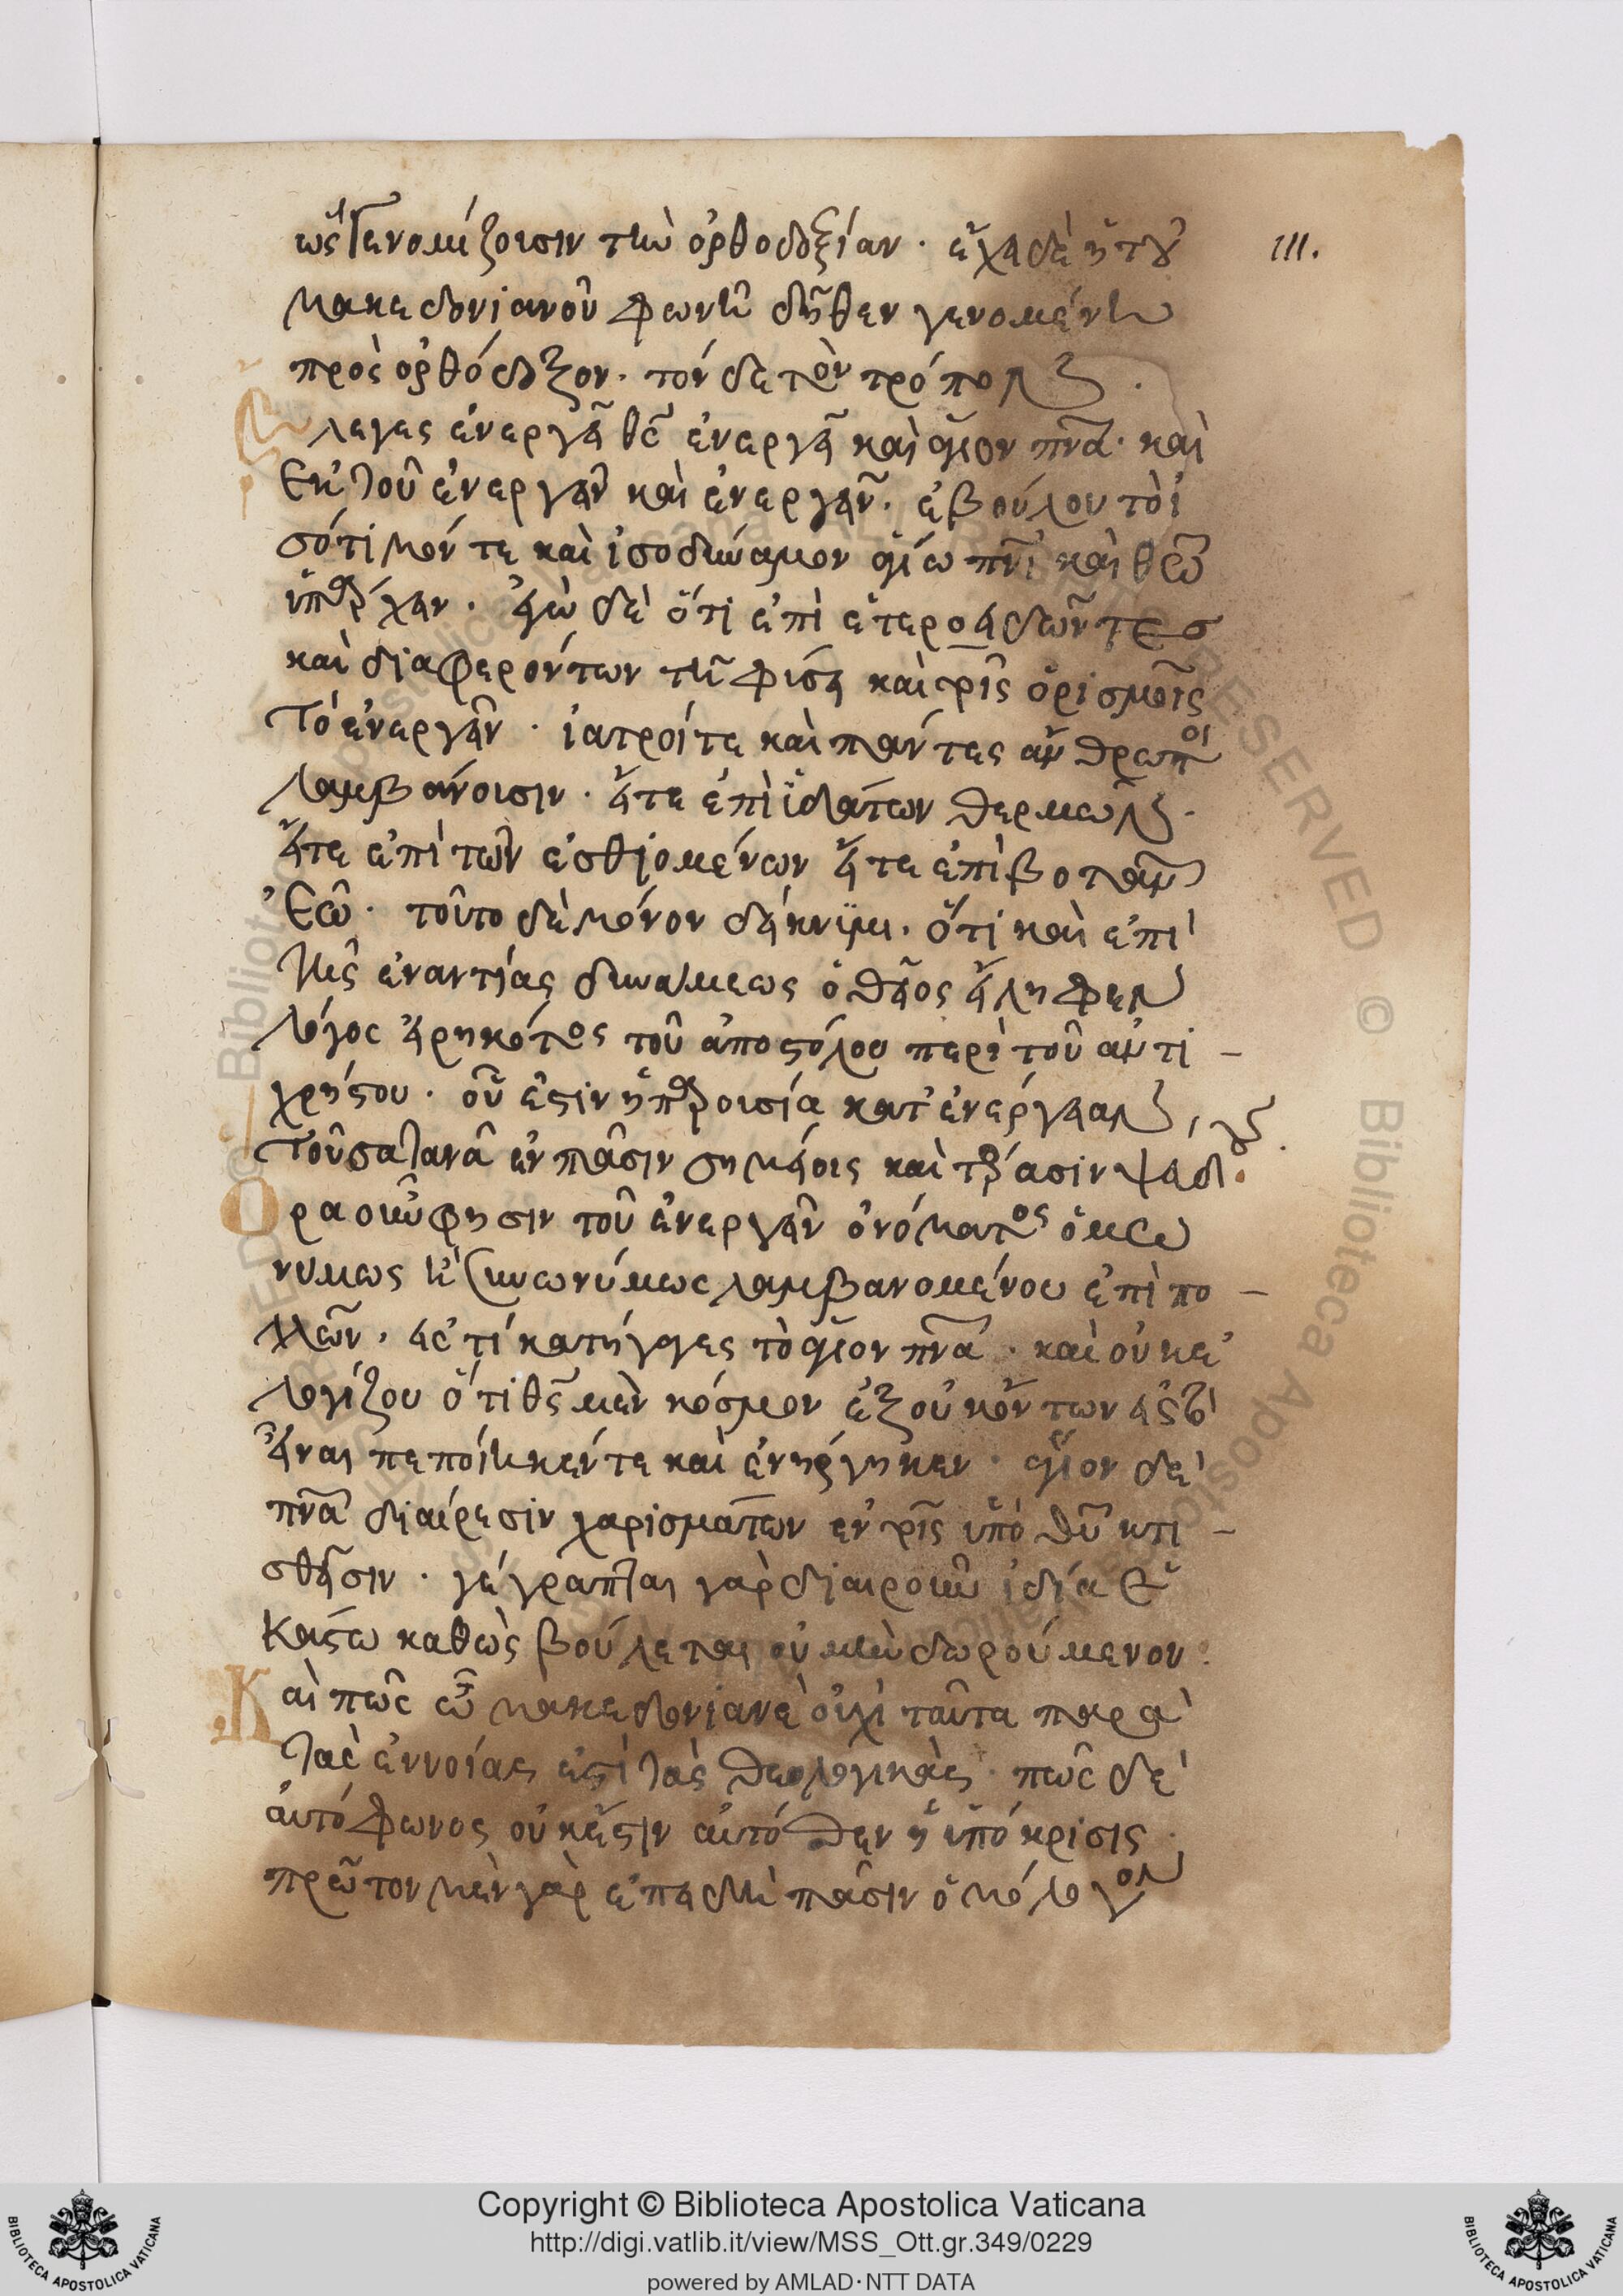 ὥς γε νομίζουσιν τὴν ὀρθοδοξίαν· εἶχε δὲ ἡ τοῦ
111.
μακεδονιανοῦ φωνὴ δῆθεν γενομένη
πρὸς ὀρθόδοξον· τόνδε τὸν τρόπον·
λεγες ἐνεργεῖ θς ἐνεργεῖ καὶ ἅγιον πνα· καὶ
ἐκ τοῦ ἐνεργεῖν καὶ ἐνεργεῖν· ἐβούλου τὸ ἰ
σότιμόν τε καὶ ἰσοδύναμον ἁγίω πνι καὶ θεῶ
ὑπάρχειν· ἐγὼ δὲ ὅτι ἐπὶ ἑτεροειδῶν τε
καὶ διαφερόντων τῆ φύσει καὶ τοῖς ὁρισμοῖς
τὸ ἐνεργεῖν· ἰατροί τε καὶ πάντες ἄνθρωποι
λαμβάνουσιν· εἴτε ἐπὶ ὑδάτων θερμῶν·
εἴτε ἐπὶ τῶν ἐσθιομένων εἴτε ἐπὶ βοτανῶν
ἐῶ· τοῦτο δὲ μόνον δείκνυμι· ὅτι καὶ ἐπὶ
τῆς ἐναντίας δυνάμεως ὁ θεῖος εἴληφεν
λόγος εἰρηκότος τοῦ ἀποστόλου περὶ τοῦ ἀντι-
χρήστου· οὗ ἐστιν ἡ παρουσία κατ' ἐνέργειαν
τοῦ σατανᾶ ἐν πᾶσιν σημείοις καὶ τέρασιν ψεύδους·
Ὅρα οὖν φησιν τοῦ ἐνεργεῖν ὀνόματος ὁμω
νύμως ἢ συνωνύμως λαμβανομένου ἐπὶ πο-
λλῶν· εἰς τί κατήγαγες τὸ ἅγιον πνα· καὶ οὐκ ἐ
λογίζου ὅτι θς μὲν κόσμον ἐξ οὐκ ὄντων εἰς τὸ
εἶναι πεποίηκέν τε καὶ ἐνήργηκεν· ἅγιον δὲ
πνα διαίρεσιν χαρισμάτων ἐν τοῖς ὑπὸ θυ κτι-
σθεῖσιν· γέγραπται γὰρ διαιροῦν ἰδία ἑ
κάστω καθὼς βούλεται οὐ μὴν δωρούμενον·
Καὶ πῶς ὦ μακεδονιανὲ οὐχὶ ταῦτα παρὰ
τὰς ἐννοίας ἐστὶ τὰς θεολογικὰς· πῶς δὲ
αὐτόφωνος οὐκ ἔστιν αὐτόθεν ἡ ὑπόκρισις
πρῶτον μὲν γὰρ ἐπειδὴ πᾶσιν ὁμόλογον
Copyright © Biblioteca Apostolica Vaticana
http://digi.vatlib.it/view/MSS_Ott.gr.349/0229
powered by AMLAD·NTT DATA